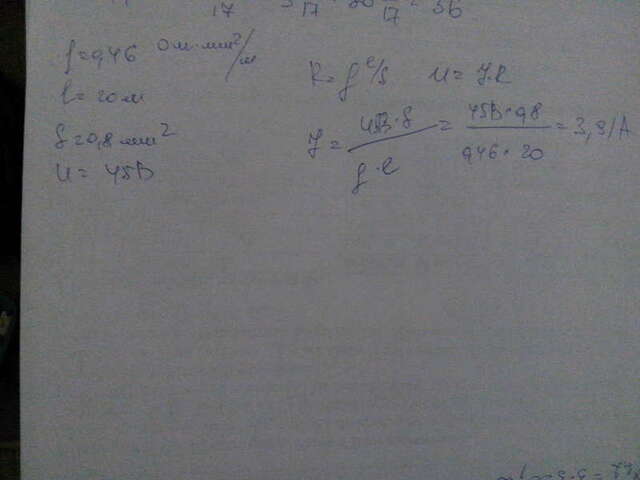 ρ=0,46 Ом·мм²/м
l=20м
S=0,8мм²
U= 45В
R=ρ l/S U= I·R
I= 45В·S/ρ·l = 45В·0,8/0,46·20 = 3,91А